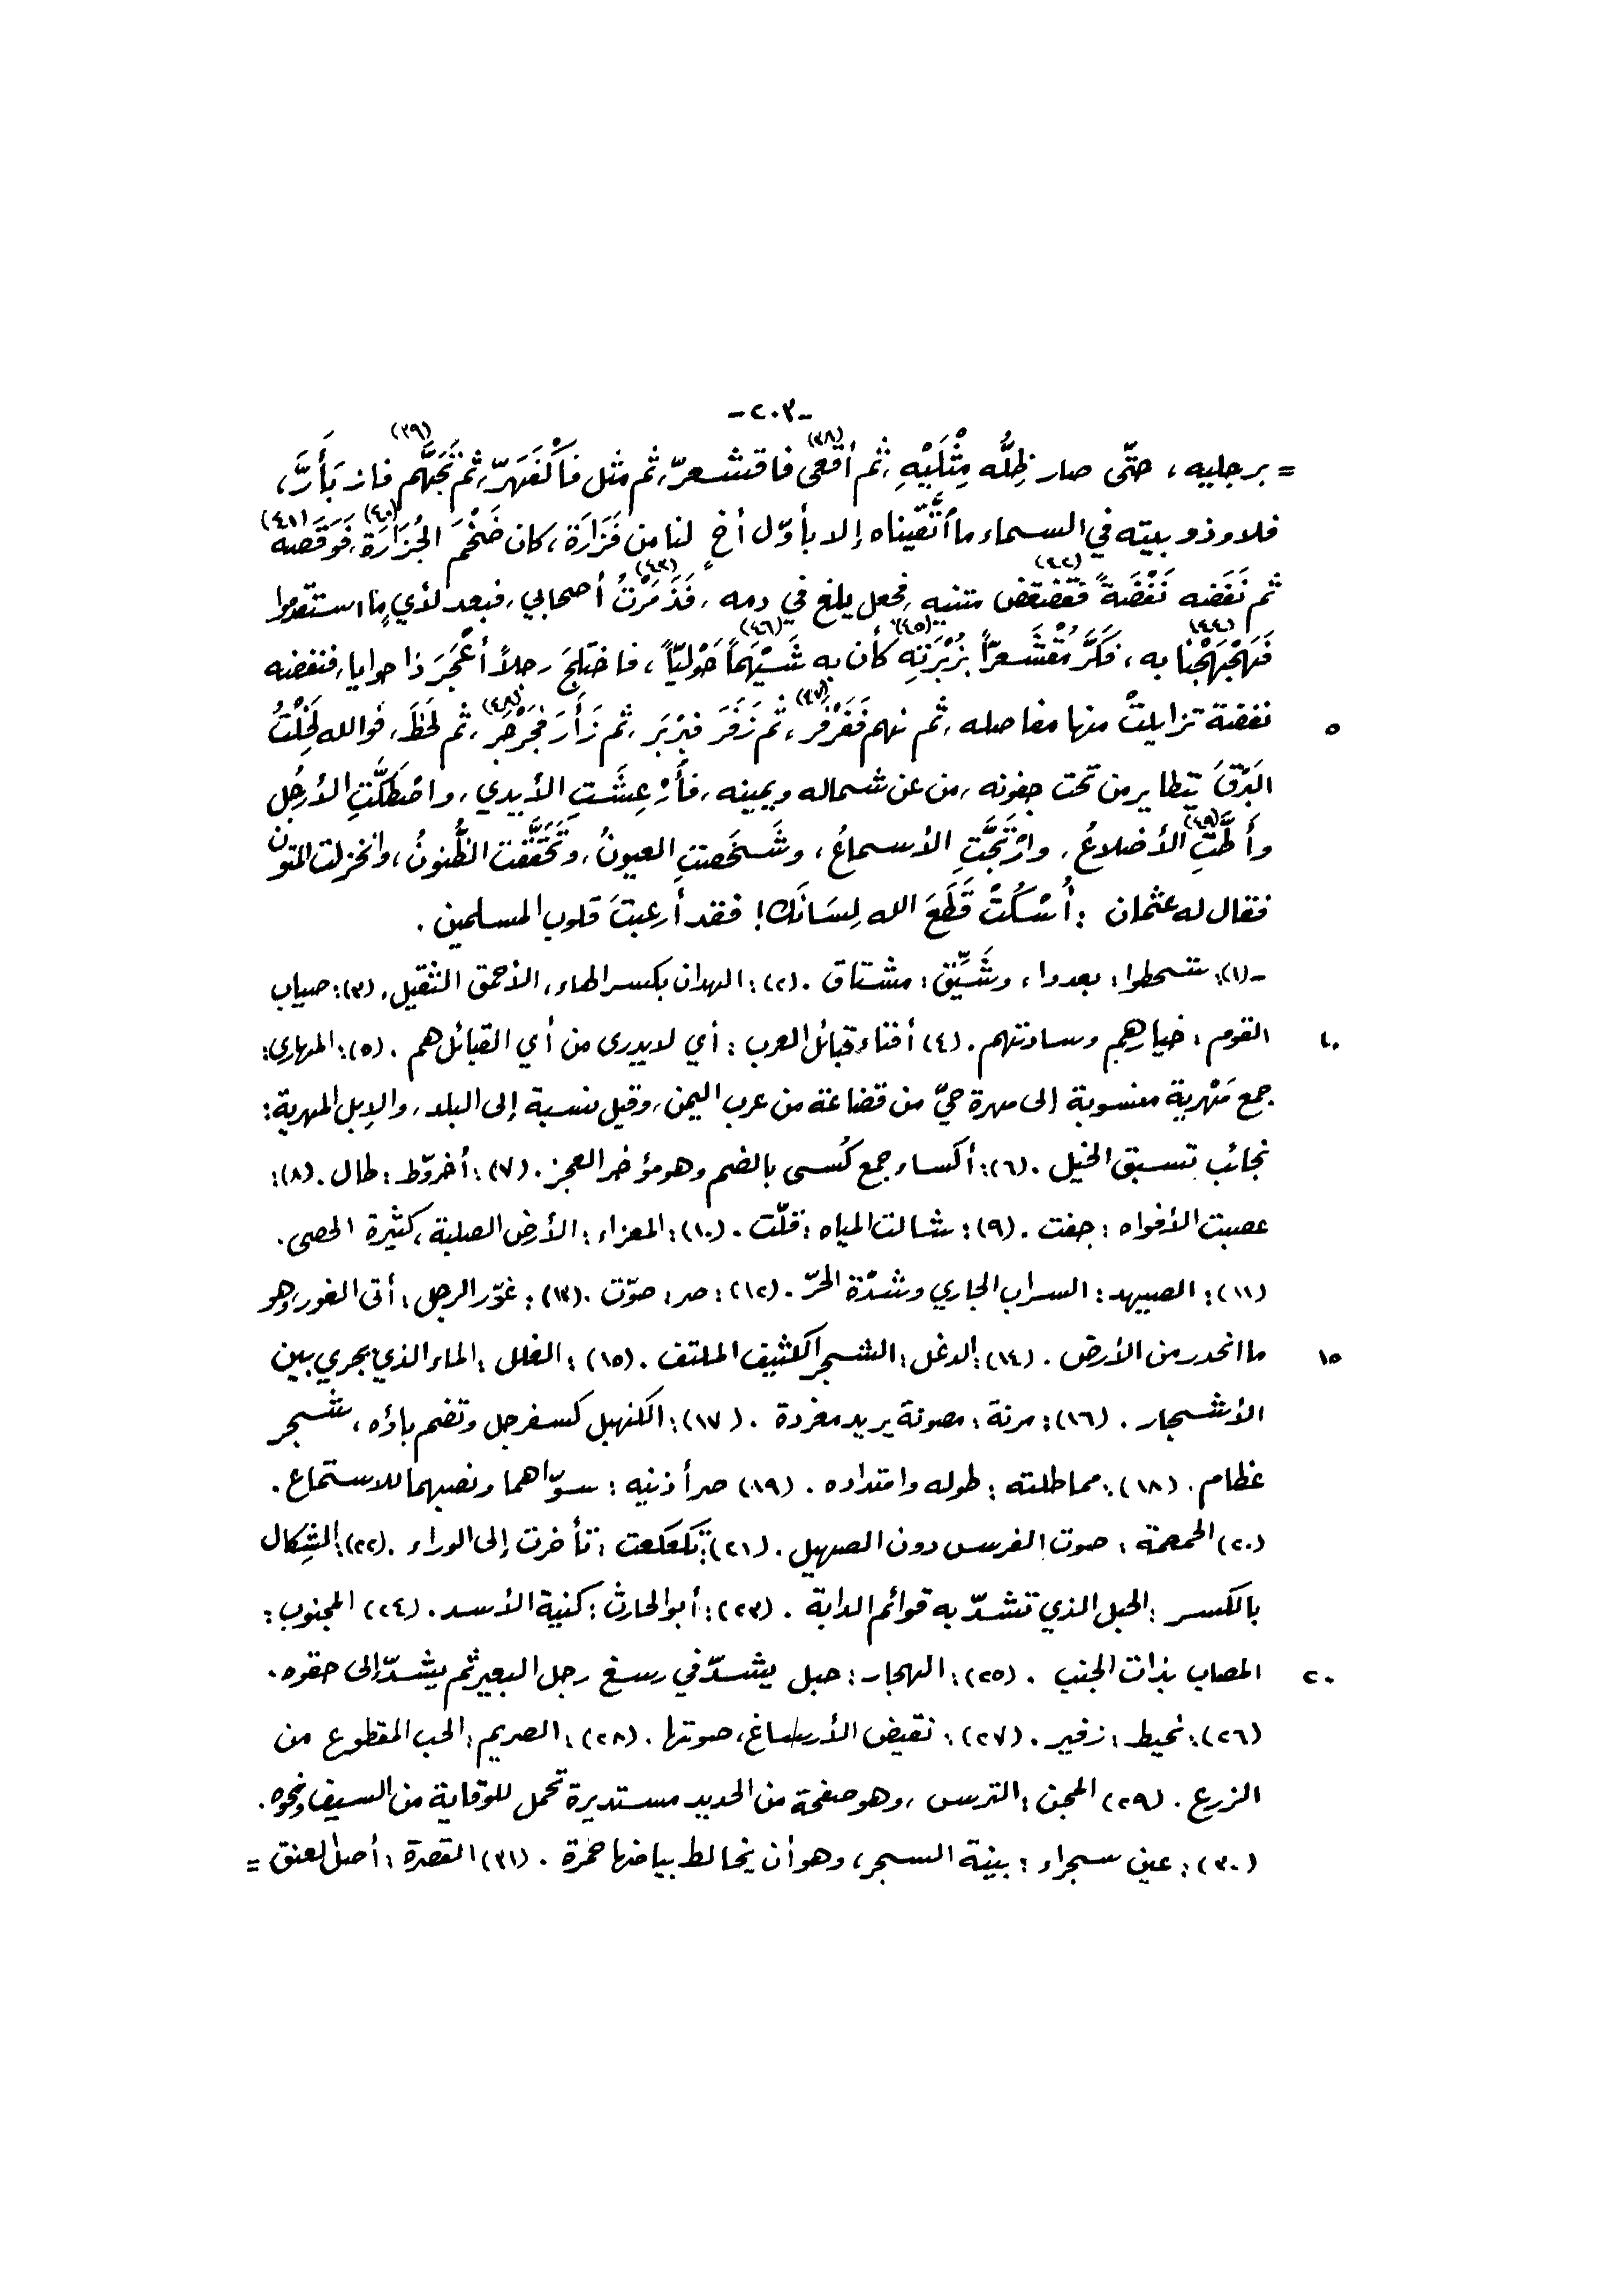 -٢٠٣-
= برجليه، حتّى صار ظِلُّه مِثْلَيْهِ، ثم أقعى(٣٨) فاقشعرّ، ثم مثل فَاكْفَهَرّ، ثم تَجَهَّم(٣٩) فازبَأَرَّ،
فلا وذو بيته في السماء ما اتَّقَيناه إلا بأوّل أخٍ لنا من فَزَارَة، كان ضَخْمَ الجُزَارَة(٤٠)، فَوَقَصَه(٤١)
ثم نَفَضه نَفْضَةً فقضقض(٤٢) متنيه، فجعل يلغ في دمه، فَذَمَرْتُ(٤٣) أصحابي، فبعد لأيٍ ما استقدموا
فَهَجْهَجْنا(٤٤) به، فَكَرَّ مُقْشَعِرّاً بزُبْرَتِهِ(٤٥) كأن به شَيْهَماً(٤٦) حَوْليّاً، فاختلجَ رجلاً أعْجَرَ ذا حوايا، فنفضه
نفضة تزايلتْ منها مفاصله، ثم نهم فَفَرْفَر(٤٧)، ثم زَفَرَ فبَرْبَر، ثم زَأَرَ فَجَرْجَر(٤٨)، ثم لَحَظَ، فوالله لَخِلْتُ
البَرْقَ يتطاير من تحت جفونه، من عن شماله ويمينه، فأُرْعِشَتِ الأيدي، واصْطَكَّتِ الأرجُل
وأَطَّتِ(٤٩) الأضلاعُ، وارْتَجَّتِ الأسماعُ، وشَخَصتِ العيونُ، وتَحَقَّقت الظُّنونُ، وانخزلت المتون
فقال له عثمان : أُسْكُتْ قَطَعَ الله لِسَانَك! فقد أرعبتَ قلوب المسلمين .
-(١): شحطوا: بعدوا، وشَيِّق: مشتاق . (٢): الهدان بكسر الهاء، الأحمق الثقيل. (٣): صياب
القوم: خيارهم وساداتهم. (٤) أفناء قبائل العرب: أي لا يدرى من أي القبائل هم . (٥): المهارى:
جمع مَهْرية منسوبة الى مهرة حيّ من قضاعة من عرب اليمن، وقيل نسبة إلى البلد، والإبل المهرية:
نجائب تسبق الخيل . (٦): أكساء جمع كُسى بالضم وهو مؤخر العجز . (٧): أخروّط: طال . (٨):
عصبت الأفواه: جفت . (٩): شالت المياه: قلّت . (١٠): المعزاء: الأرض الصلبة، كثيرة الحصى.
(١١): الصيهد: السراب الجاري وشدّة الحرّ . (١٢): صر: صوّت . (١٣): غوّر الرجل: أتى الغور، وهو
ما انحدر من الأرض . (١٤): الدغل: الشجر الكثيف الملتف . (١٥): الغلل: الماء الذي يجري بين
الأشجار . (١٦): مرنة: مصوتة يريد مغردة . (١٧): الكنهبل كسفرجل وتضم باؤه، شجر
عظام . (١٨): مماطلته: طوله وامتداده . (١٩) صر أذنيه: سوّاهما ونصبهما للاستماع .
(٢٠) الحمحمة: صوت الفرس دون الصهيل . (٢١): تكعكعت: تأخرت إلى الوراء . (٢٢): الشِكال
بالكسر: الحبل الذي تشدّ به قوائم الدابة . (٢٣): أبو الحارث: كنية الأسد . (٢٤) المجنوب:
المصاب بذات الجنب . (٢٥): الهجار: حبل يشدّ في رسغ رجل البعير ثم يشدّ إلى حقوه .
(٢٦): نحيط: زفير . (٢٧): نقيض الأرساغ، صوتها . (٢٨): الصريم: الحب المقطوع من
الزرع . (٢٩) المجن: الترس، وهو صفحة من الحديد مستديرة تحمل للوقاية من السيف ونحوه .
(٣٠): عين سجراء: بينة السجر، وهو أن يخالط بياضها حمرة . (٣١) القصرة: أصل العنق =
٥
١٠
١٥
٢٠